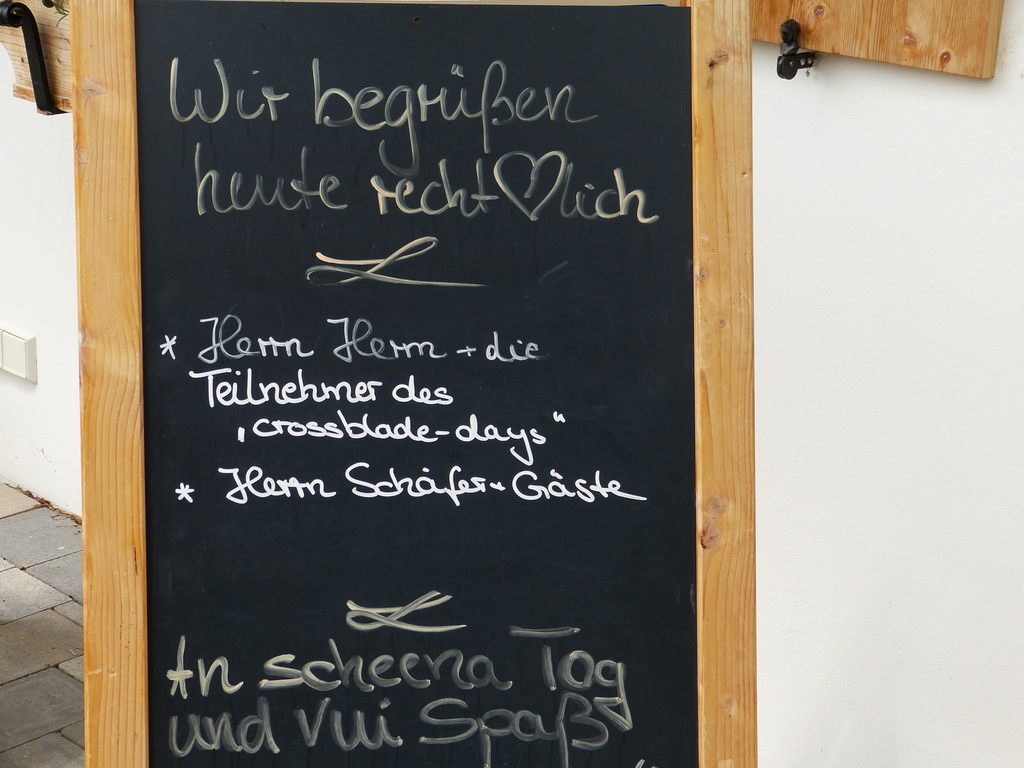 Wir begrüßen
heute recht♡lich
* Herrn Herrn + die
Teilnehmer des
„crossblade-days“
* Herrn Schäfer + Gäste
An scheena Tog
und vui Spaß